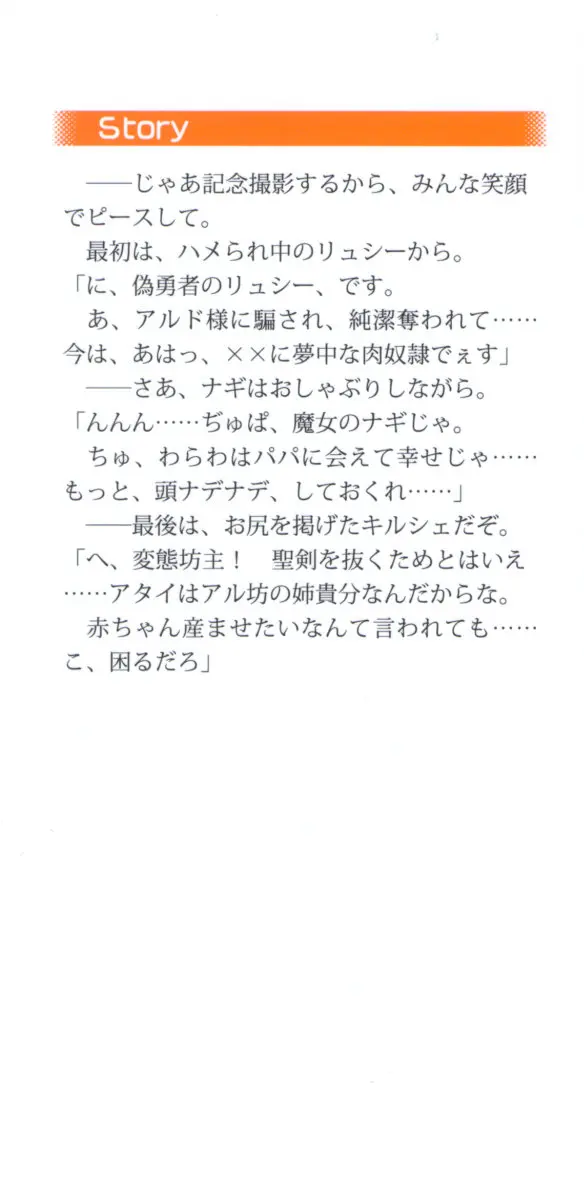 Story
――じゃあ記念撮影するから、みんな笑顔
でピースして。
最初は、ハメられ中のリュシーから。
「に、偽勇者のリュシー、です。
あ、アルド様に騙され、純潔奪われて……
今は、あはっ、××に夢中な肉奴隷でぇす」
――さあ、ナギはおしゃぶりしながら。
「んんん……ぢゅぱ、魔女のナギじゃ。
ちゅ、わらわはパパに会えて幸せじゃ……
もっと、頭ナデナデ、しておくれ……」
――最後は、お尻を掲げたキルシェだぞ。
「へ、変態坊主！　聖剣を抜くためとはいえ
……アタイはアル坊の姉貴分なんだからな。
赤ちゃん産ませたいなんて言われても……
こ、困るだろ」